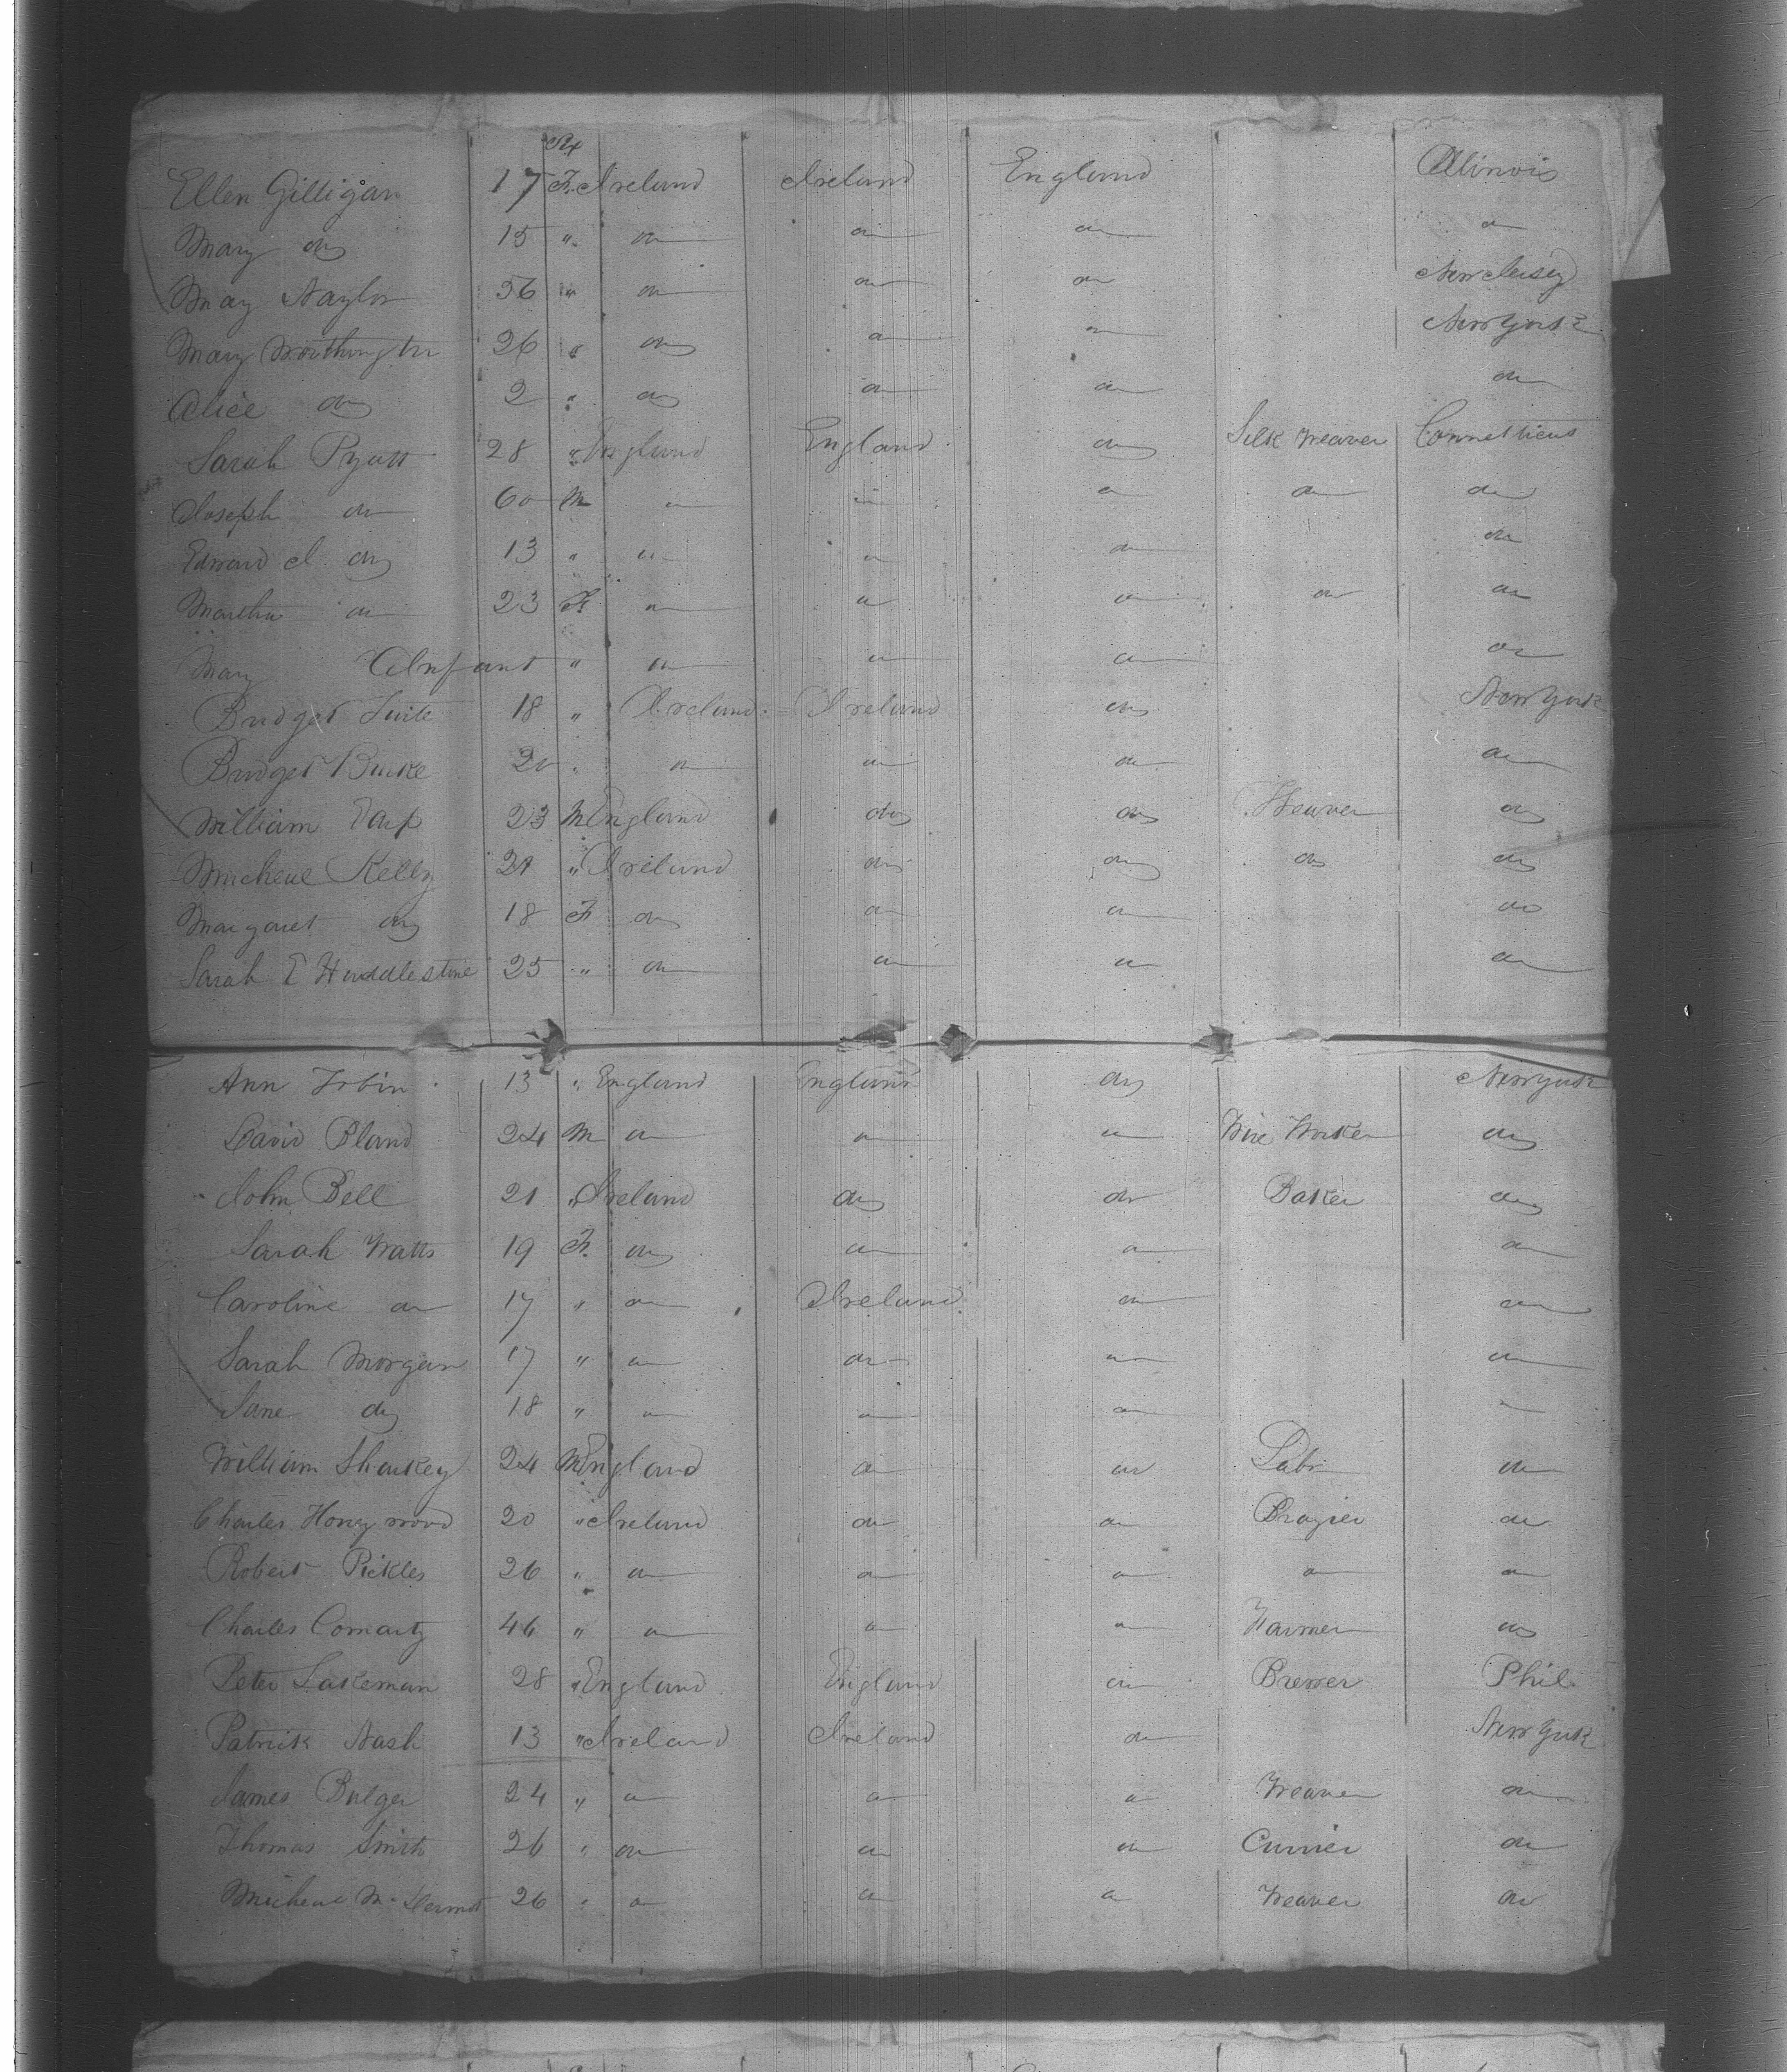 Ellen Gilligan 17 F. Ireland Ireland England Illinois
Mary do 15 " do do do do
Mary Naylor 56 " do do do New Jersey
Mary Worthington 26 " do do do New York
Alice do 2 " do do do do
Sarah Pyatt 28 " England England do Silk Weaver Connetticut
Joseph do 60 M do do do do do
Edward J do 13 " do do do do
Martha do 23 F do do do do do
Mary Infant " do do do do
Bridget Tuite 18 " Ireland Ireland do New York
Bridget Burke 20 " do do do do
William Tarp 23 M England do do Weaver do
Micheal Kelly 21 " Ireland do do do do
Margaret do 18 F do do do do
Sarah E Huddlestine 25 " do do do do
Ann Tobin 13 " England England do New York
David Bland 24 M do do do Wire Worker do
John Bell 21 " Ireland do do Baker do
Sarah Watts 19 F. do do do do
Caroline do 17 " do Ireland do do
Sarah Morgan 17 " do do do do
Jane do 18 " do do do do
William Sharkey 24 M England do do Labr do
Charles Honywood 20 " Ireland do do Brazier do
Robert Pickles 26 " do do do do do
Charles 46 " do do do Farmer do
Peter Lakeman 28 " England England do Brewer Phil
Patrick Nash 13 " Ireland Ireland do New York
James Bulger 24 " do do do Weaver do
Thomas Smith 26 " do do do Currier do
Micheal McDermot 26 " do do do Weaver do